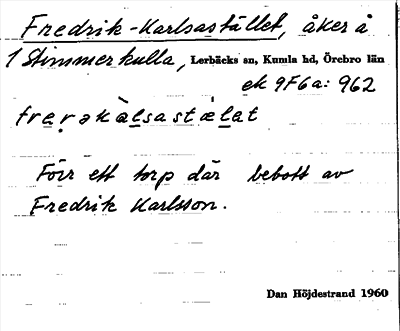 Fredrik-Karlsastället, åker å
1 Stimmerkulla, Lerbäcks sn, Kumla hd, Örebro län
ek 9F6a: 962
frerəkàlsastælat
Förr ett torp där bebott av
Fredrik Karlsson.
Dan Höjdestrand 1960